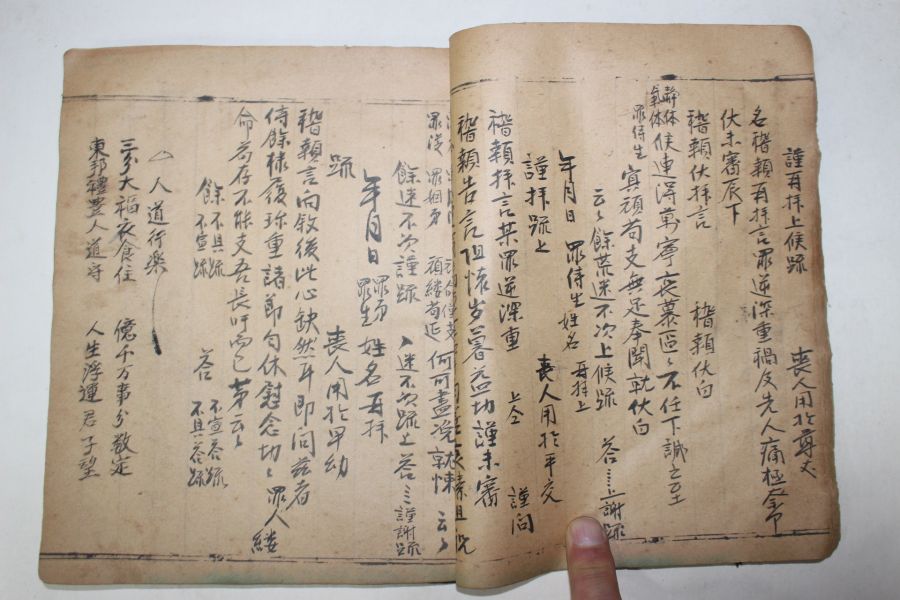 謹再拜上候疏 喪人用於尊丈
名稽顙再拜言罪逆深重禍及先人痛極奈何
伏未審辰下
稽顙伏拜言 稽顙伏白
靜体 氣体 候連得萬寧哀慕區〻不任下誠之至
罪侍生 寞頑苟支無足奉聞就伏白
云〻餘荒迷不次上候疏 答〻上謝疏
年月日 罪侍生姓名 再拜上
謹拜疏上 喪人用於平交
稽顙拜言某罪逆深重 上仝 謹問
稽顙告言阻懷岁暮益切謹未審
何可盡說就悚 云〻
餘迷不次謹疏 〻迷不次疏上 答〻謹謝疏
年月日 罪弟 罪生 姓名 再拜
疏 喪人用於卑幼
稽顙言向敘後此心缺然耳即問茲者
侍餘棣履珍重諸節勻休慰念切〻罪人縷
命苟存不能支吾長吁而已第云〻
餘 不具疏 不宣疏 答 不宣答疏 不具答疏
△ 人道行樂
三多大福衣食住 億千万事分敬定
東邦禮豊人道守 人生浮運君子望